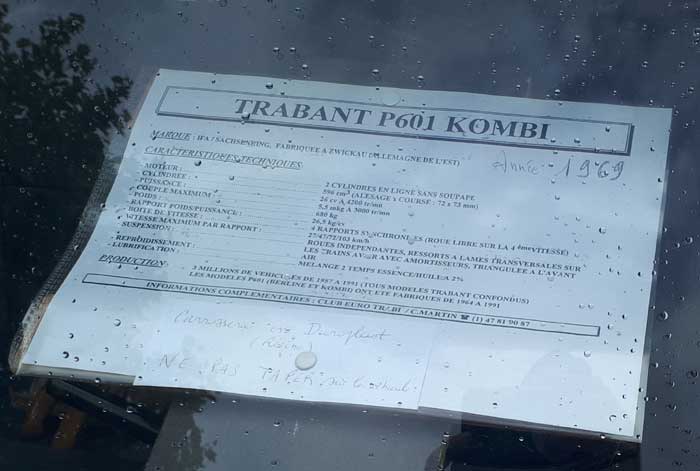 TRABANT P601 KOMBI
MARQUE : IFA / SACHSENRING, FABRIQUEE A ZWICKAU (ALLEMAGNE DE L'EST)
Année 1969
CARACTERISTIQUES TECHNIQUES
MOTEUR : 2 CYLINDRES EN LIGNE SANS SOUPAPE
CYLINDREE : 596 cm³ (ALESAGE y COURSE : 72 x 73 mm)
PUISSANCE : 26 cv A 4200 tr/mn
COUPLE MAXIMUM : 5,5 mkg A 3000 tr/mn
POIDS : 680 kg
RAPPORT POIDS/PUISSANCE : 26,5 kg/cv
BOITE DE VITESSE : 4 RAPPORTS SYNCHRONELES (ROUE LIBRE SUR LA 4 émeVITESSE)
VITESSE MAXIMUM PAR RAPPORT : 27/47/72/103 km/h
SUSPENSION : ROUES INDEPENDANTES, RESSORTS A LAMES TRANSVERSALES SUR
LES TRAINS AV/AR AVEC AMORTISSEURS, TRIANGULEE A L'AVANT
REFROIDISSEMENT : AIR
LUBRIFICATION : MELANGE 2 TEMPS ESSENCE/HUILE A 2%
PRODUCTION
3 MILLIONS DE VEHICULES DE 1957 A 1991 (TOUS MODELES TRABANT CONFONDUS)
LES MODELES P601 (BERLINE ET KOMBI) ONT ETE FABRIQUES DE 1964 A 1991
INFORMATIONS COMPLEMENTAIRES : CLUB EURO TRABI / C.MARTIN ☎ (1) 47 81 90 87
Carrosserie en Duroplast
(Résine)
NE PAS TAPER sur le véhicule